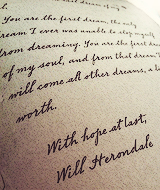 last dream of my
l.
You are the first dream, the only
dream I ever was unable to stop myself
from dreaming. You are the first dream
of my soul, and from that dream
will come all other dreams, a
worth.
With hope at last,
Will Herondale